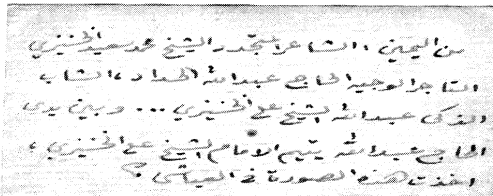 من اليمين : الشاعر المتجدد الشيخ محمد سعيد الخنيزي
التاجر الوجيه الحاج عبدالله الحداد ، الشاب
الذكي عبدالله الشيخ علي الخنيزي ... وبين يدي
الحاج عبدالله يتيم الامام الشيخ علي الخنيزي ،
اخذت هذه الصورة في